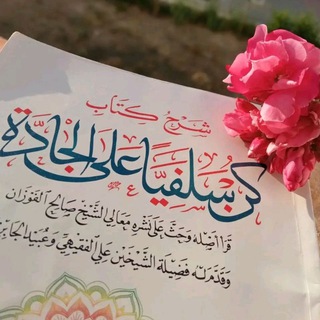 شرح كتاب
كن سلفيًا على الجادة
قرأ أصله وحث على نشره معالي الشيخ صالح الفوزان
وقدم له فضيلة الشيخين علي الفقيهي وعبيد الجابري